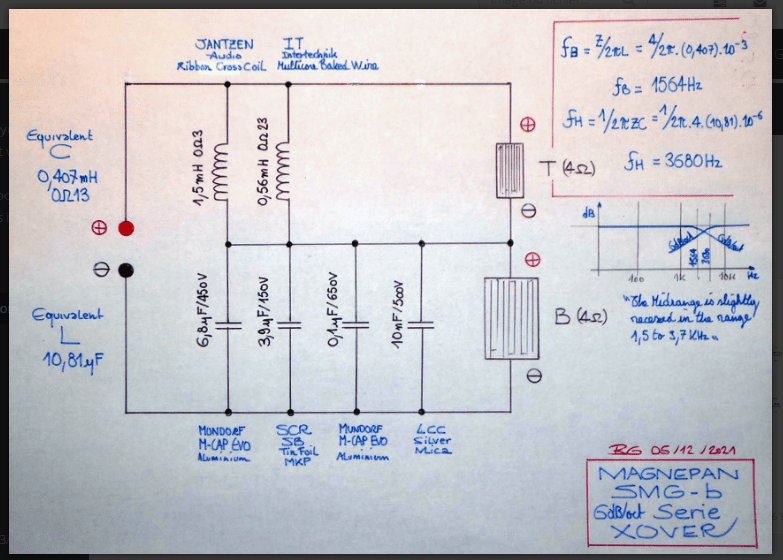 JANTZEN
Audio
Ribbon CrossCoil
IT
Intertechnik
Multicore Baked Wire
Equivalent
C
0,407mH
0Ω13
1,5mH 0Ω3
0,56mH 0Ω23
⊕
⊖
T (4Ω)
⊕
⊖
Equivalent
L
10,81μF
6,8μF/450V
3,9μF/150V
0,1μF/650V
10nF/500V
⊕
B (4Ω)
⊖
MUNDORF
M-CAP EVO
Aluminium
SCR
SB
Tin Foil
MKP
MUNDORF
M-CAP EVO
Aluminium
LCC
Silver
Mica
fB = Z/2πL = 4/2π.(0,407).10⁻³
fB = 1564Hz
fH = 1/2πZC = 1/2π.4.(10,81).10⁻⁶
fH = 3680Hz
dB
6dB/oct
6dB/oct
1564
3680
100
1K
10K
Hz
"The Midrange is slightly
recessed in the range
1,5 to 3,7 KHz"
BG 05/12/2021
MAGNEPAN
SMG-b
6dB/oct Serie
XOVER